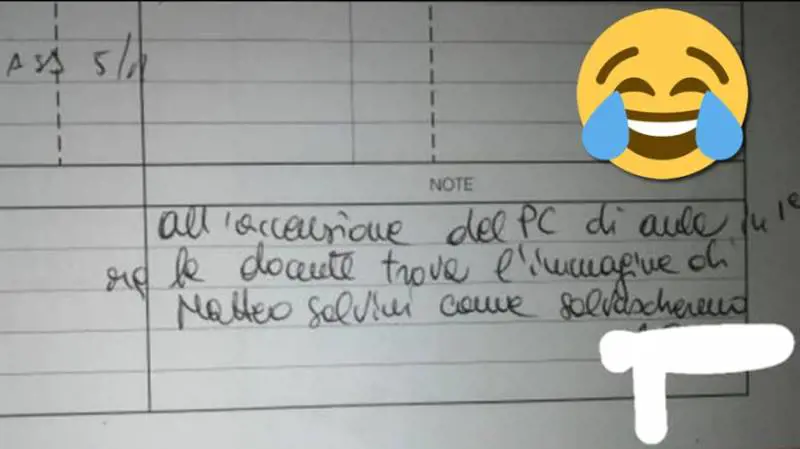 ASS 5/11
NOTE
all'accensione del PC di aula in 1°
la docente trova l'immagine di
Matteo Salvini come salvaschermo